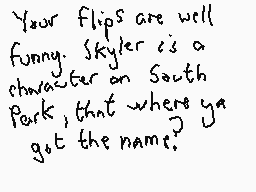 Your flips are well
funny. Skyler is a
character on South
Park, that where ya
got the name?